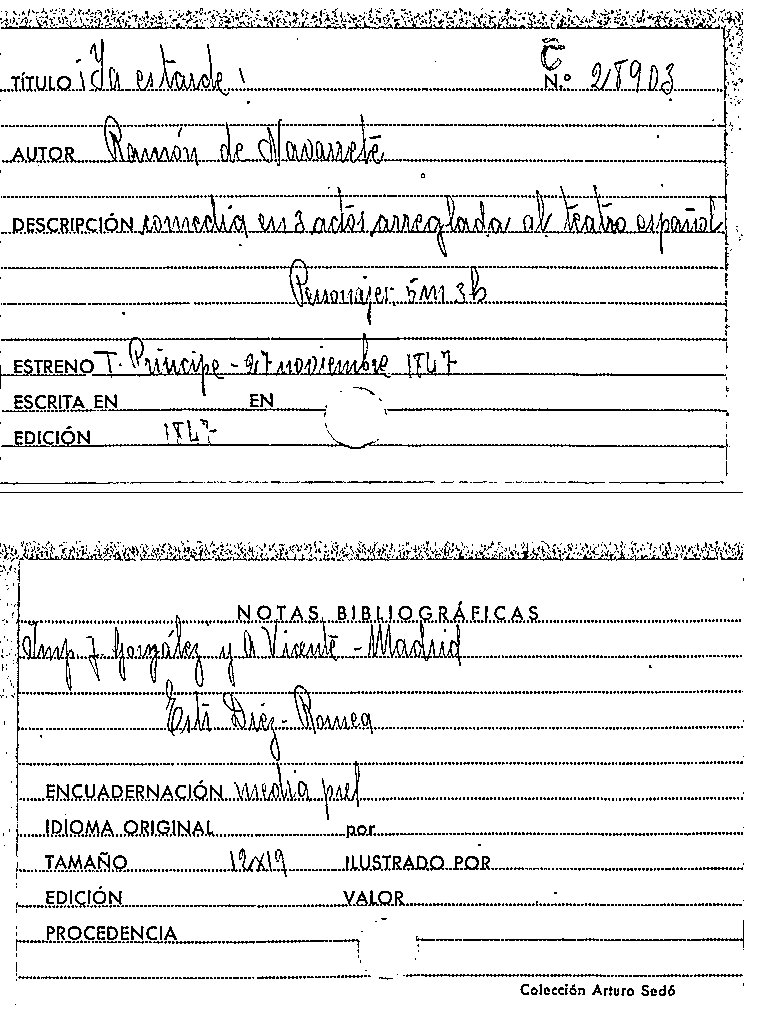 C
TÍTULO ¡Ya es tarde! N.º 28903
AUTOR Ramón de Navarrete
DESCRIPCIÓN comedia en 3 actos arreglada al teatro español
Personajes 5m 3h
ESTRENO T. Príncipe - 27 noviembre 1847
ESCRITA EN EN
EDICIÓN 1847
NOTAS BIBLIOGRÁFICAS
Imp J. González y A Vicente - Madrid
Diez - Romea
ENCUADERNACIÓN media piel
IDIOMA ORIGINAL por
TAMAÑO 12x19 ILUSTRADO POR
EDICIÓN VALOR
PROCEDENCIA
Colección Arturo Sedó